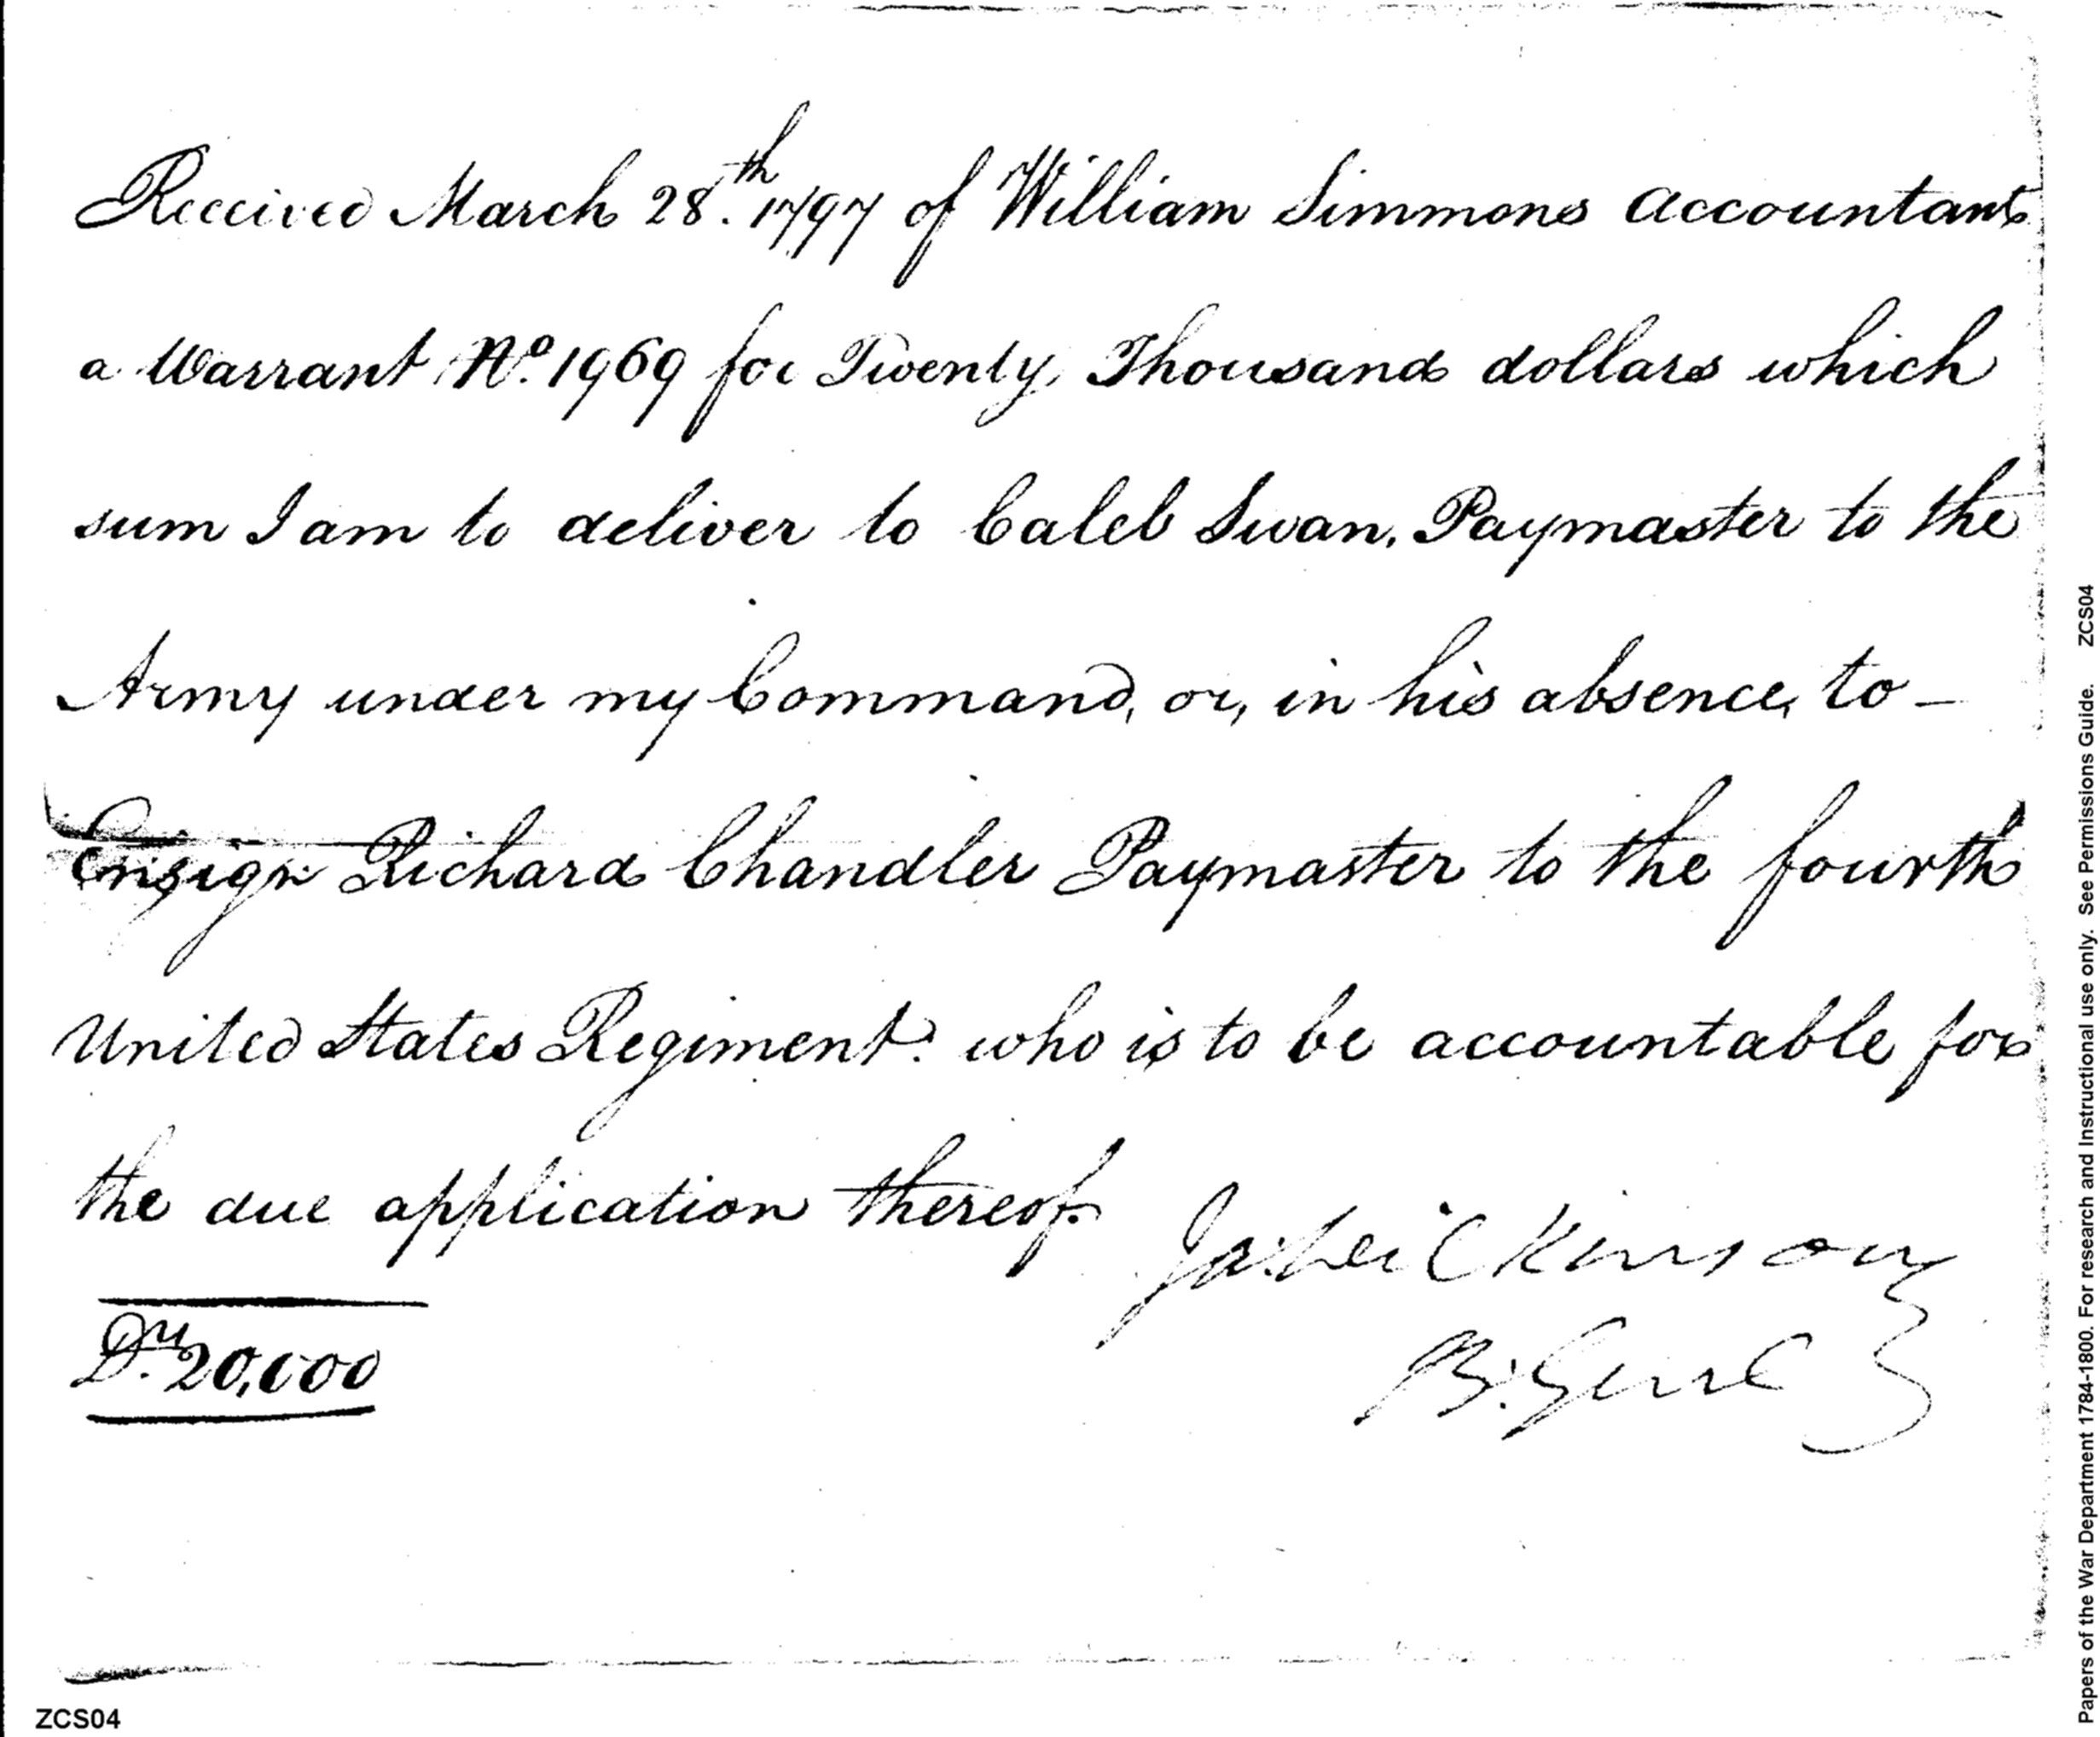 Received March 28th. 1797 of William Simmons Accountant
a Warrant No. 1969 for Twenty Thousand dollars which
sum I am to deliver to Caleb Swan, Paymaster to the
Army under my Command, or, in his absence, to -
Ensign Richard Chandler Paymaster to the fourth
United States Regiment. who is to be accountable for
the due application thereof.
Ja: Wilkinson
B. Genl
Drs. 20,000
ZCS04
Papers of the War Department 1784-1800. For research and Instructional use only. See Permissions Guide. ZCS04